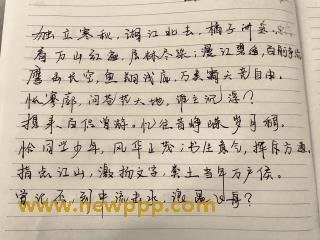 独立寒秋，湘江北去，橘子洲头。
看万山红遍，层林尽染；漫江碧透，百舸争流。
鹰击长空，鱼翔浅底，万类霜天竞自由。
怅寥廓，问苍茫大地，谁主沉浮？
携来百侣曾游。忆往昔峥嵘岁月稠。
恰同学少年，风华正茂；书生意气，挥斥方遒。
指点江山，激扬文字，粪土当年万户侯。
曾记否，到中流击水，浪遏飞舟？
www.newppp.com